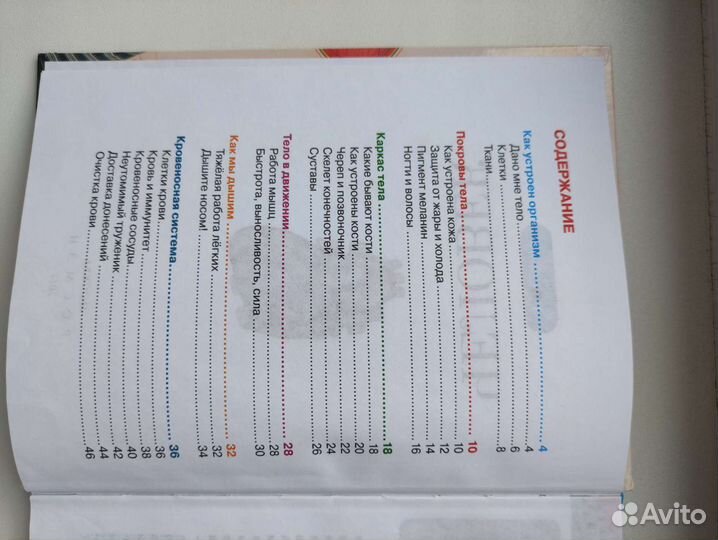 СОДЕРЖАНИЕ
Как устроен организм 4
Дано мне тело 4
Клетки 6
Ткани 8
Покровы тела 10
Как устроена кожа 10
Защита от жары и холода 12
Пигмент меланин 14
Ногти и волосы 16
Каркас тела 18
Какие бывают кости 18
Как устроены кости 20
Череп и позвоночник 22
Скелет конечностей 24
Суставы 26
Тело в движении 28
Работа мышц 28
Быстрота, выносливость, сила 30
Как мы дышим 32
Тяжёлая работа лёгких 32
Дышите носом! 34
Кровеносная система 36
Клетки крови 36
Кровь и иммунитет 38
Кровеносные сосуды 40
Неутомимый труженик 42
Доставка донесений 44
Очистка крови 46
Avito